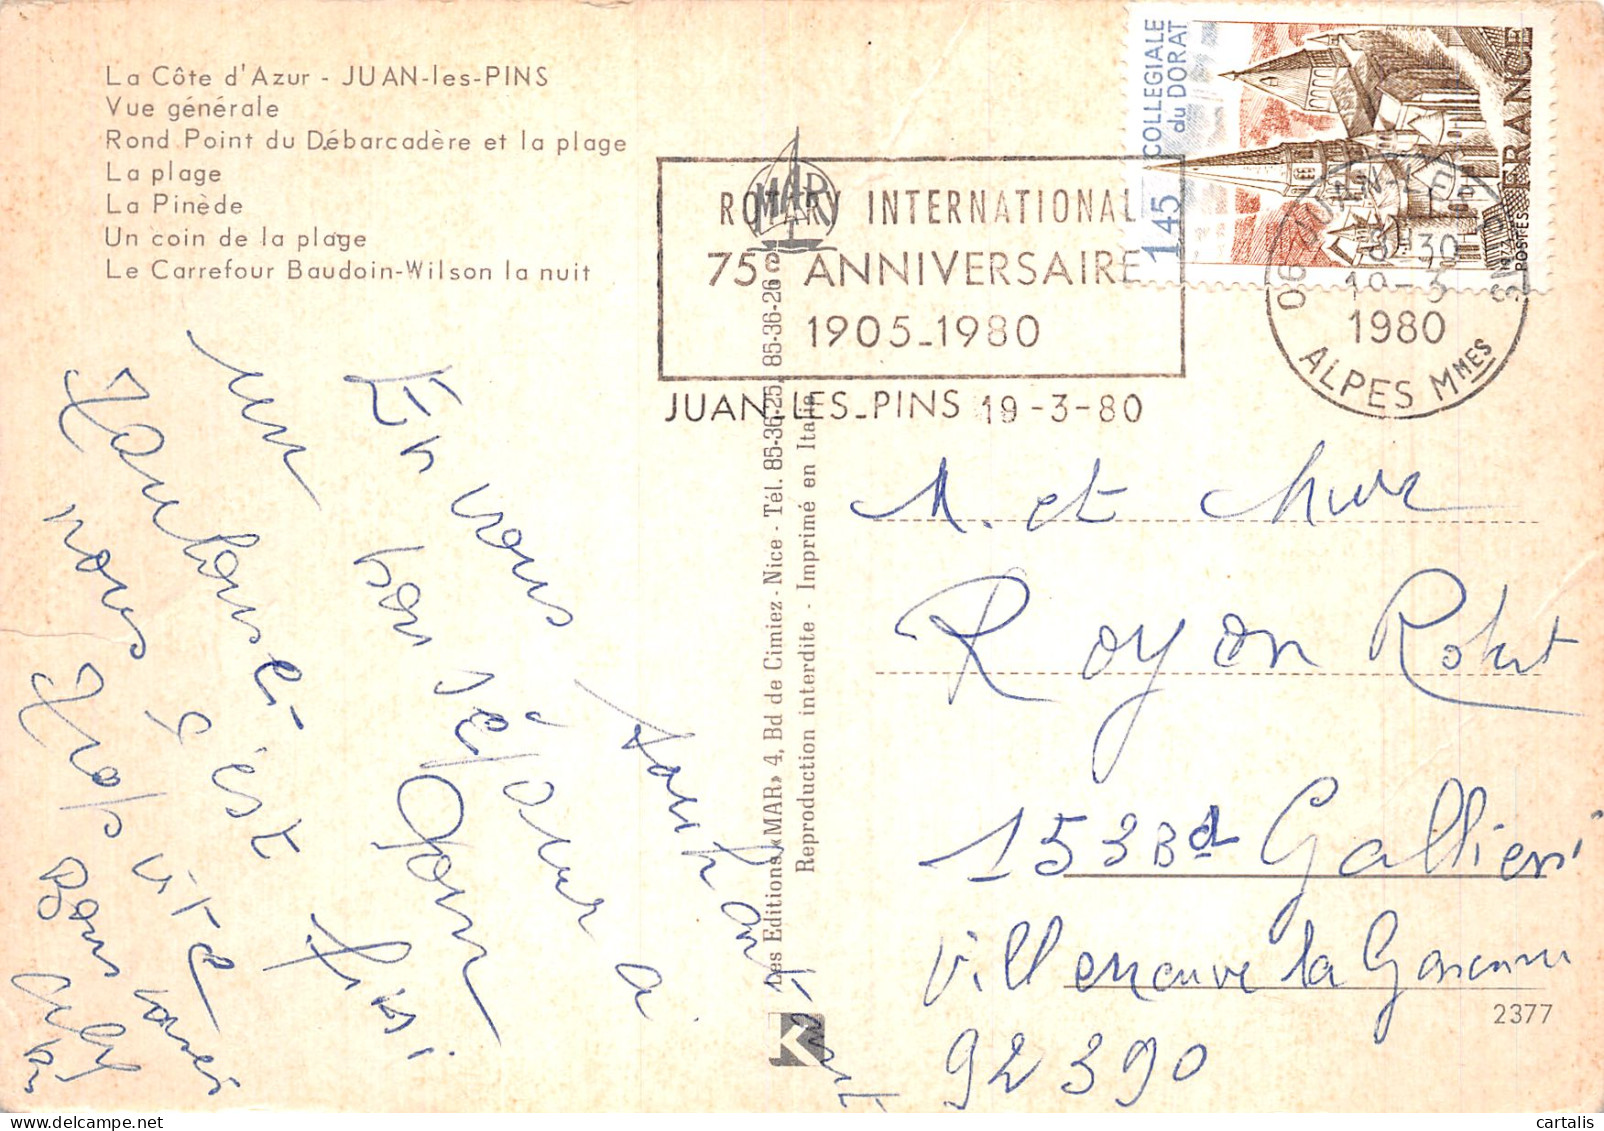 La Côte d'Azur - JUAN-les-PINS
Vue générale
Rond Point du Débarcadère et la plage
La plage
La Pinède
Un coin de la plage
Le Carrefour Baudoin-Wilson la nuit
MAR
ROTARY INTERNATIONAL
75e ANNIVERSAIRE
1905-1980
JUAN-LES-PINS 19-3-80
COLLEGIALE
du DORAT
1,45
FRANCE
POSTES
06 JUAN-LES-PINS
19-3
1980
ALPES MMES
Les Editions «MAR» 4, Bd de Cimiez - Nice - Tél. 85-36-25, 85-36-26
Reproduction interdite - Imprimé en Italie
K
En vous souhaitant
un bon séjour a
Toulouse
nous c'est
trop vite
Bons baisers
M. et Mme
Royon Robert
153 Bd Gallieni
Villeneuve la Garenne
92390
2377
cartalis